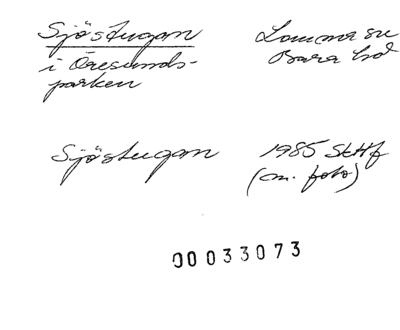 Sjöstugan
i Öresunds-
parken
Lomma sn
Bara hd
Sjöstugan
1985 StHf
(m. foto)
00033073